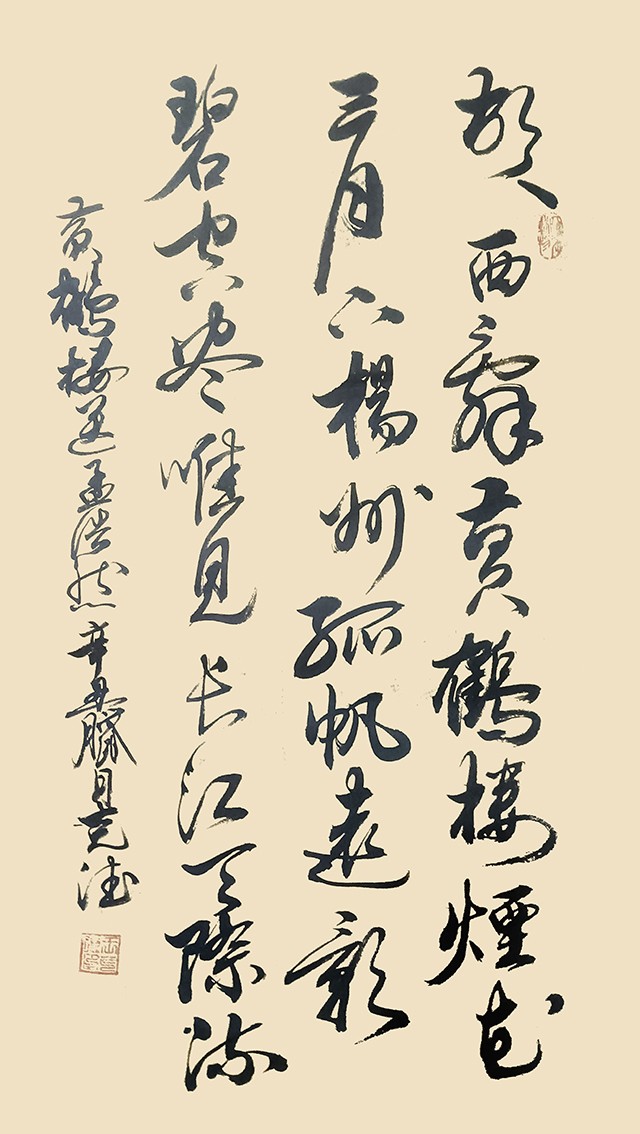 故人西辭黄鶴樓煙花
三月下楊州孤帆遠影
碧空尽唯見长江天際流
黄鶴楼送孟浩然辛丑臘月克